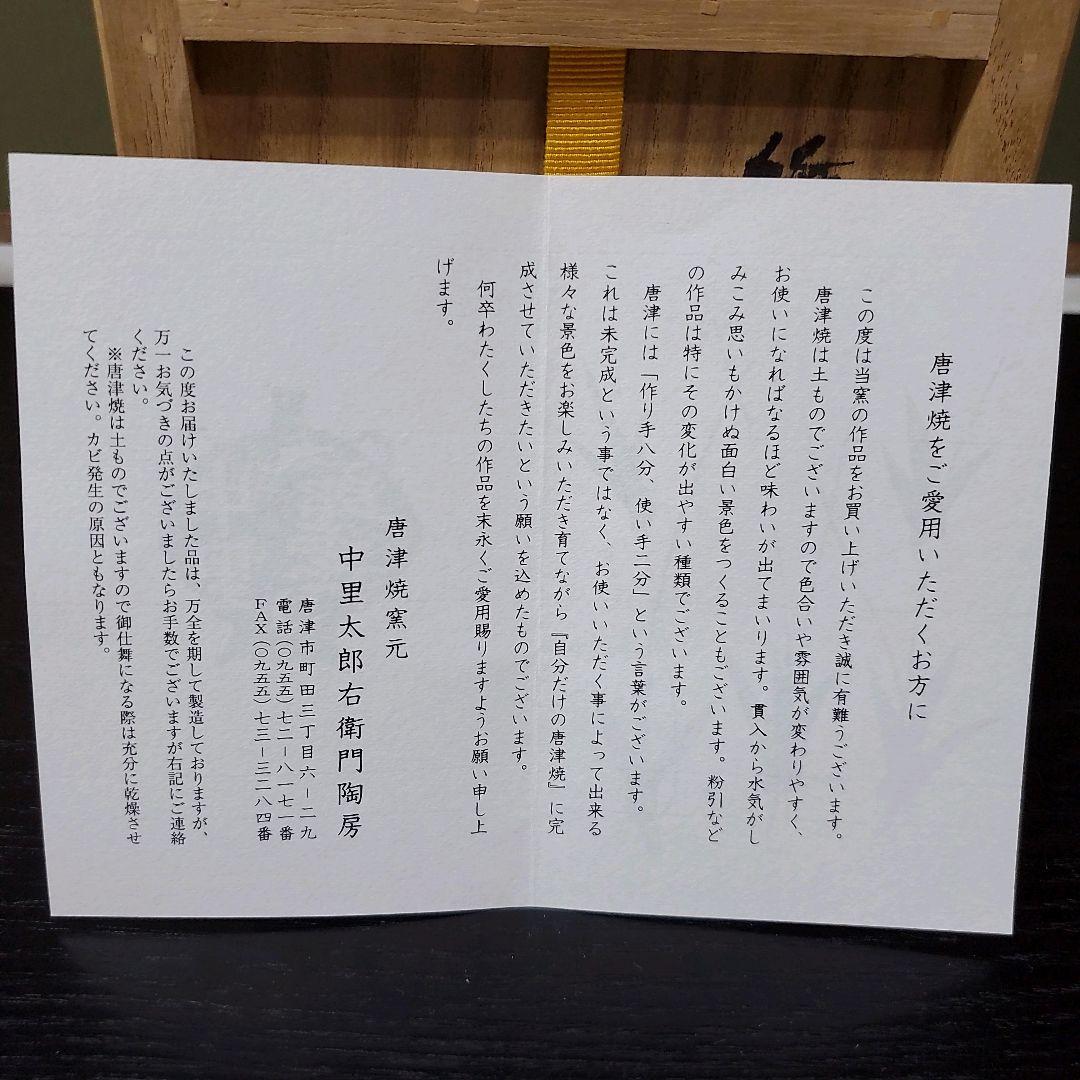 唐津焼をご愛用いただくお方に
この度は当窯の作品をお買い上げいただき誠に有難うございます。
唐津焼は土ものでございますので色合いや雰囲気が変わりやすく、
お使いになればなるほど味わいが出てまいります。貫入から水気がし
みこみ思いもかけぬ面白い景色をつくることもございます。粉引など
の作品は特にその変化が出やすい種類でございます。
唐津には「作り手八分、使い手二分」という言葉がございます。
これは未完成という事ではなく、お使いいただく事によって出来る
様々な景色をお楽しみいただき育てながら『自分だけの唐津焼』に完
成させていただきたいという願いを込めたものでございます。
何卒わたくしたちの作品を末永くご愛用賜りますようお願い申し上
げます。
唐津焼窯元
中里太郎右衛門陶房
唐津市町田三丁目六－二九
電話(〇九五五)七二－八一七一番
FAX(〇九五五)七三－三二八四番
この度お届けいたしました品は、万全を期して製造しておりますが、
万一お気づきの点がございましたらお手数でございますが右記にご連絡
ください。
※唐津焼は土ものでございますので御仕舞になる際は充分に乾燥させ
てください。カビ発生の原因ともなります。